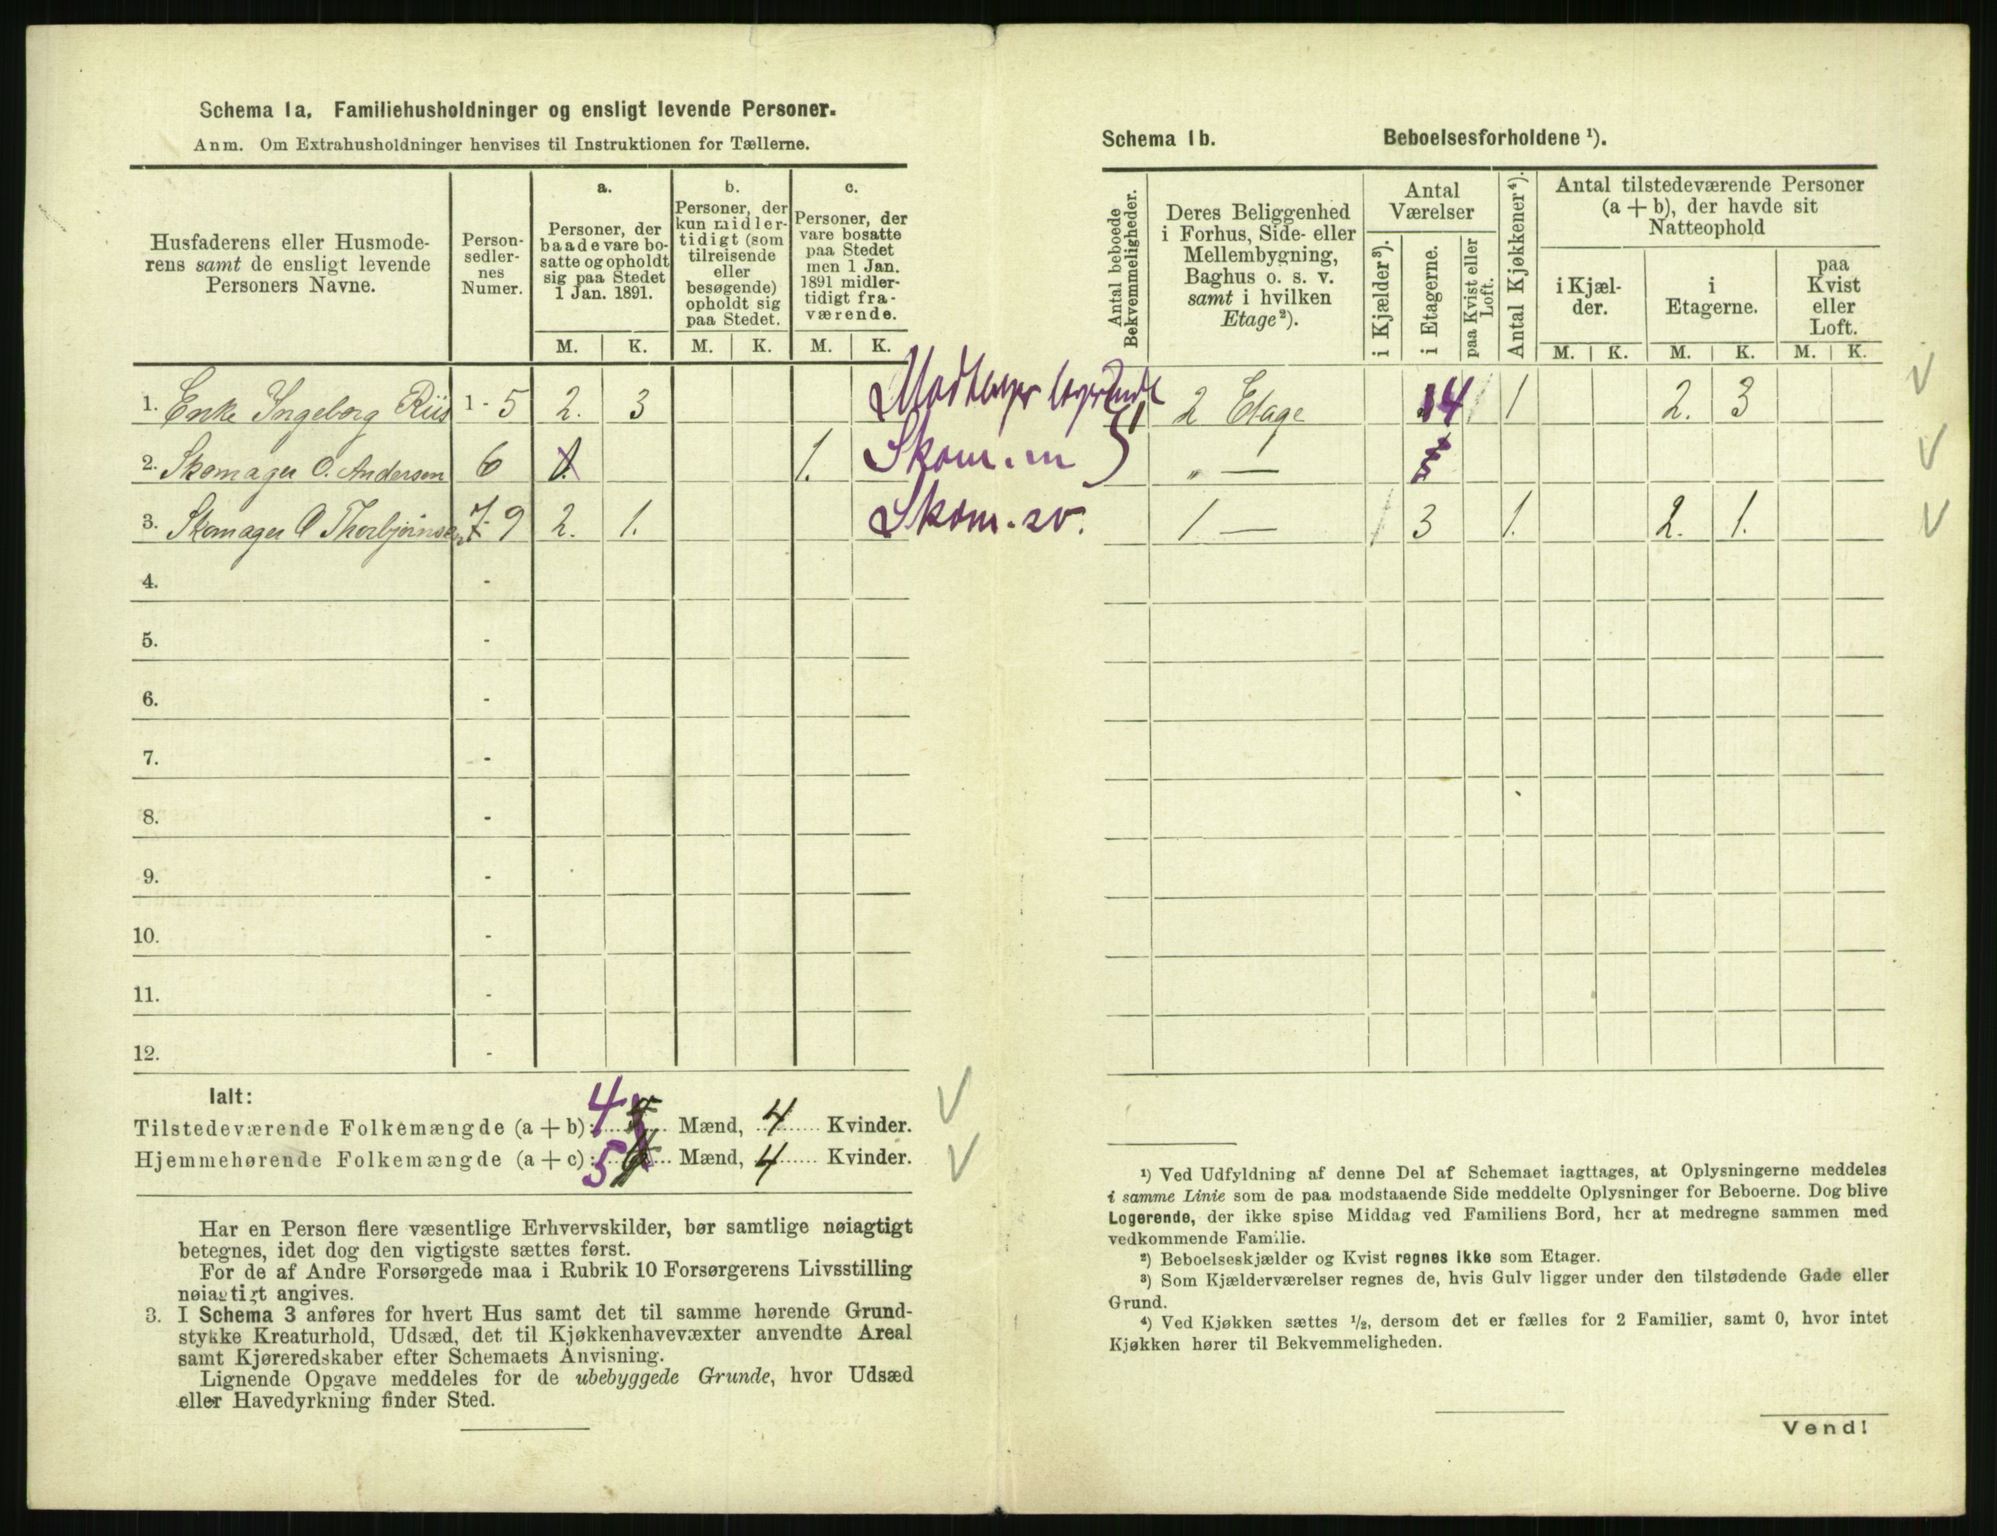 Schema 1a. Familiehusholdninger og ensligt levende Personer.
Anm. Om Extrahusholdninger henvises til Instruktionen for Tællerne.
Husfaderens eller Husmode-
rens samt de ensligt levende
Personers Navne.
Person-
sedler-
nes
Numer.
a.
Personer, der
baade vare bo-
satte og opholdt
sig paa Stedet
1 Jan. 1891.
b.
Personer, der
kun midler-
tidigt (som
tilreisende
eller
besøgende)
opholdt sig
paa Stedet.
c.
Personer, der
vare bosatte
paa Stedet
men 1 Jan.
1891 midler-
tidigt fra-
værende.
M. K. M. K. M. K.
1. Enke Ingeborg Riis 1 - 5 2. 3
2. Skomager O. Andersen 6 1. Skom. m
3. Skomager O Thorbjørnsen 7-9 2. 1. Skom. sv.
4. -
5. -
6. -
7. -
8. -
9. -
10. -
11. -
12. -
Ialt:
Tilstedeværende Folkemængde (a + b): 4 Mænd, 4 Kvinder.
Hjemmehørende Folkemængde (a + c): 5 Mænd, 4 Kvinder.
Har en Person flere væsentlige Erhvervskilder, bør samtlige nøiagtigt
betegnes, idet dog den vigtigste sættes først.
For de af Andre Forsørgede maa i Rubrik 10 Forsørgerens Livsstilling
nøiagtigt angives.
3. I Schema 3 anføres for hvert Hus samt det til samme hørende Grund-
stykke Kreaturhold, Udsæd, det til Kjøkkenhavevæxter anvendte Areal
samt Kjøreredskaber efter Schemaets Anvisning.
Lignende Opgave meddeles for de ubebyggede Grunde, hvor Udsæd
eller Havedyrkning finder Sted.
Schema 1b. Beboelsesforholdene ¹).
Antal beboede
Bekvemmeligheder.
Deres Beliggenhed
i Forhus, Side- eller
Mellembygning,
Baghus o. s. v.
samt i hvilken
Etage²).
Antal
Værelser
i Kjælder³).
i Etagerne.
paa Kvist eller
Loft.
Antal Kjøkkener⁴).
Antal tilstedeværende Personer
(a + b), der havde sit
Natteophold
i Kjæl-
der.
i
Etagerne.
paa
Kvist
eller
Loft.
M. K. M. K. M. K.
1 2 Etage 4 1 2. 3
„ —
1 — 3 1. 2. 1.
¹) Ved Udfyldning af denne Del af Schemaet iagttages, at Oplysningerne meddeles
i samme Linie som de paa modstaaende Side meddelte Oplysninger for Beboerne. Dog blive
Logerende, der ikke spise Middag ved Familiens Bord, her at medregne sammen med
vedkommende Familie.
²) Beboelseskjælder og Kvist regnes ikke som Etager.
³) Som Kjælderværelser regnes de, hvis Gulv ligger under den tilstødende Gade eller
Grund.
⁴) Ved Kjøkken sættes ½, dersom det er fælles for 2 Familier, samt 0, hvor intet
Kjøkken hører til Bekvemmeligheden.
Vend!